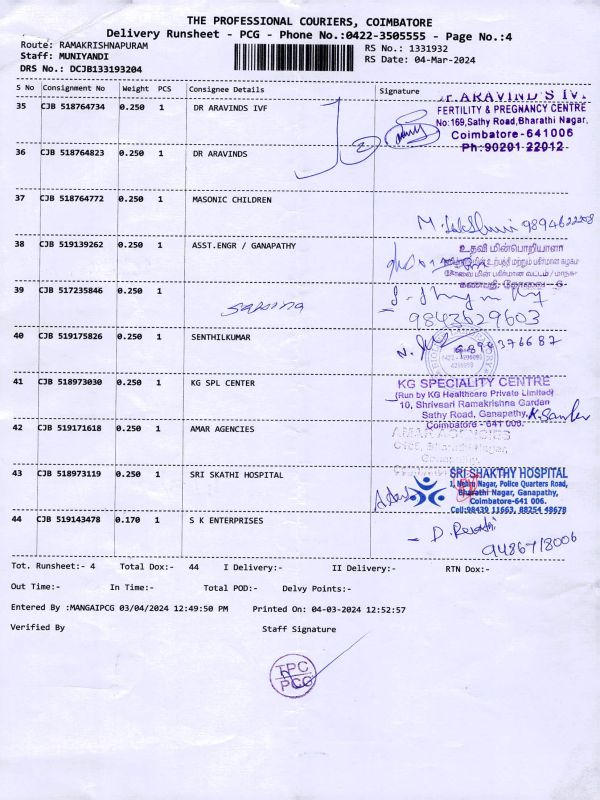 THE PROFESSIONAL COURIERS, COIMBATORE
Delivery Runsheet - PCG - Phone No.:0422-3505555 - Page No.:4
Route: RAMAKRISHNAPURAM
RS No.: 1331932
Staff: MUNIYANDI
RS Date: 04-Mar-2024
DRS No.: DCJB133193204
S No Consignment No Weight PCS Consignee Details Signature
35 CJB 518764734 0.250 1 DR ARAVINDS IVF
Dr.ARAVIND'S IVF
FERTILITY & PREGNANCY CENTRE
No:169,Sathy Road,Bharathi Nagar,
Coimbatore-641006
Ph:90201 22012
2
36 CJB 518764823 0.250 1 DR ARAVINDS
37 CJB 518764772 0.250 1 MASONIC CHILDREN
38 CJB 519139262 0.250 1 ASST.ENGR / GANAPATHY
உதவி மின்பொறியாளர்
39 CJB 517235846 0.250 1
9843629603
40 CJB 519175826 0.250 1 SENTHILKUMAR
41 CJB 518973030 0.250 1 KG SPL CENTER
KG SPECIALITY CENTRE
(Run by KG Healthcare Private Limited)
10, Shrivaari Ramakrishna Garden
Sathy Road, Ganapathy,
Coimbatore - 641 006.
42 CJB 519171618 0.250 1 AMAR AGENCIES
AMAR AGENCIES
43 CJB 518973119 0.250 1 SRI SKATHI HOSPITAL
SRI SHAKTHY HOSPITAL
Nagar, Police Quarters Road,
Bharathi Nagar, Ganapathy,
Coimbatore-641 006.
Cell:98439 11663, 88254 48678
44 CJB 519143478 0.170 1 S K ENTERPRISES
D. Revathi
9486718006
Tot. Runsheet:- 4 Total Dox:- 44 I Delivery:- II Delivery:- RTN Dox:-
Out Time:- In Time:- Total POD:- Delvy Points:-
Entered By :MANGAIPCG 03/04/2024 12:49:50 PM Printed On: 04-03-2024 12:52:57
Verified By Staff Signature
TPC
PCG